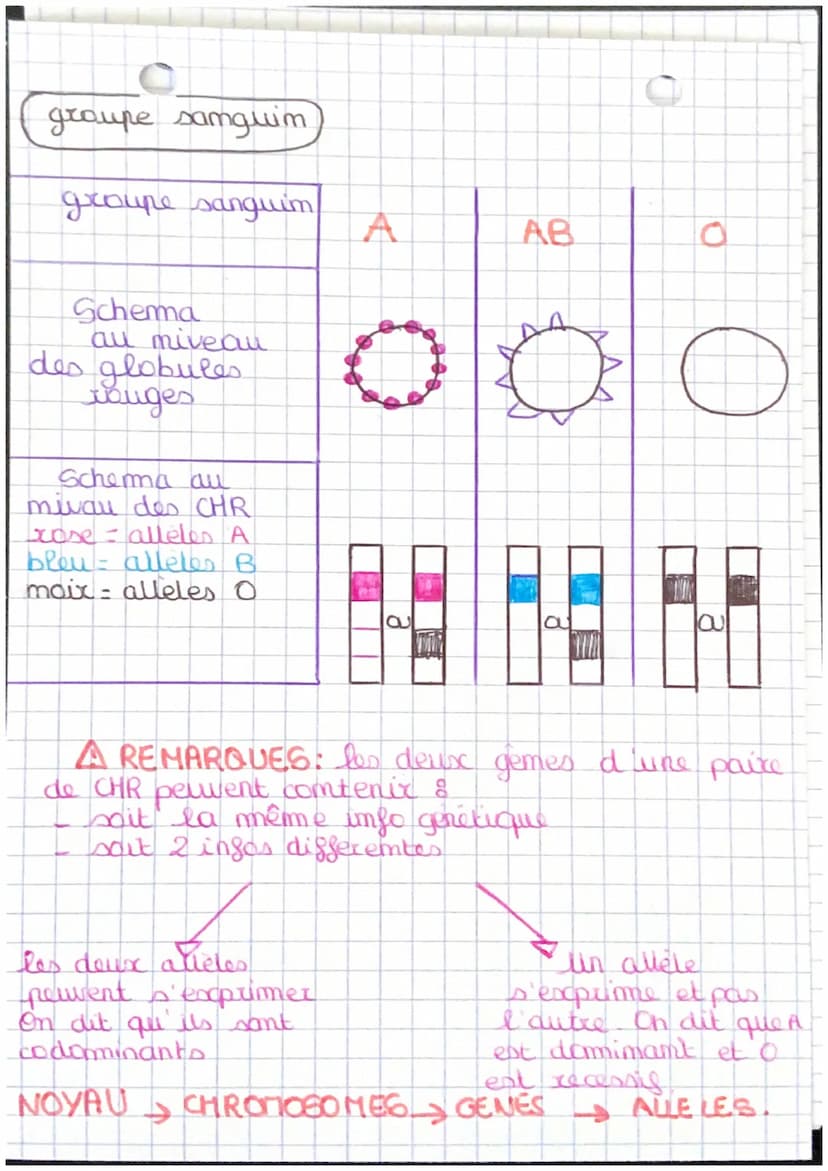 groupe sanguin
groupe sanguin
A
AB
O
Schema
au niveau
des globules
rouges
Schema au
nivau des CHR
rose = allèles A
bleu = allèles B
noir = allèles O
REMARQUES: les deux gènes d'une paire
de CHR peuvent contenir :
- soit la même info génétique
- soit 2 infos differentes
les deux allèles
peuvent s'exprimer
On dit qu'ils sont
codominants
Un allèle
s'exprime et pas
l'autre. On dit que A
est dominant et O
est recessif
NOYAU → CHROMOSOMES → GENES → ALLELES.